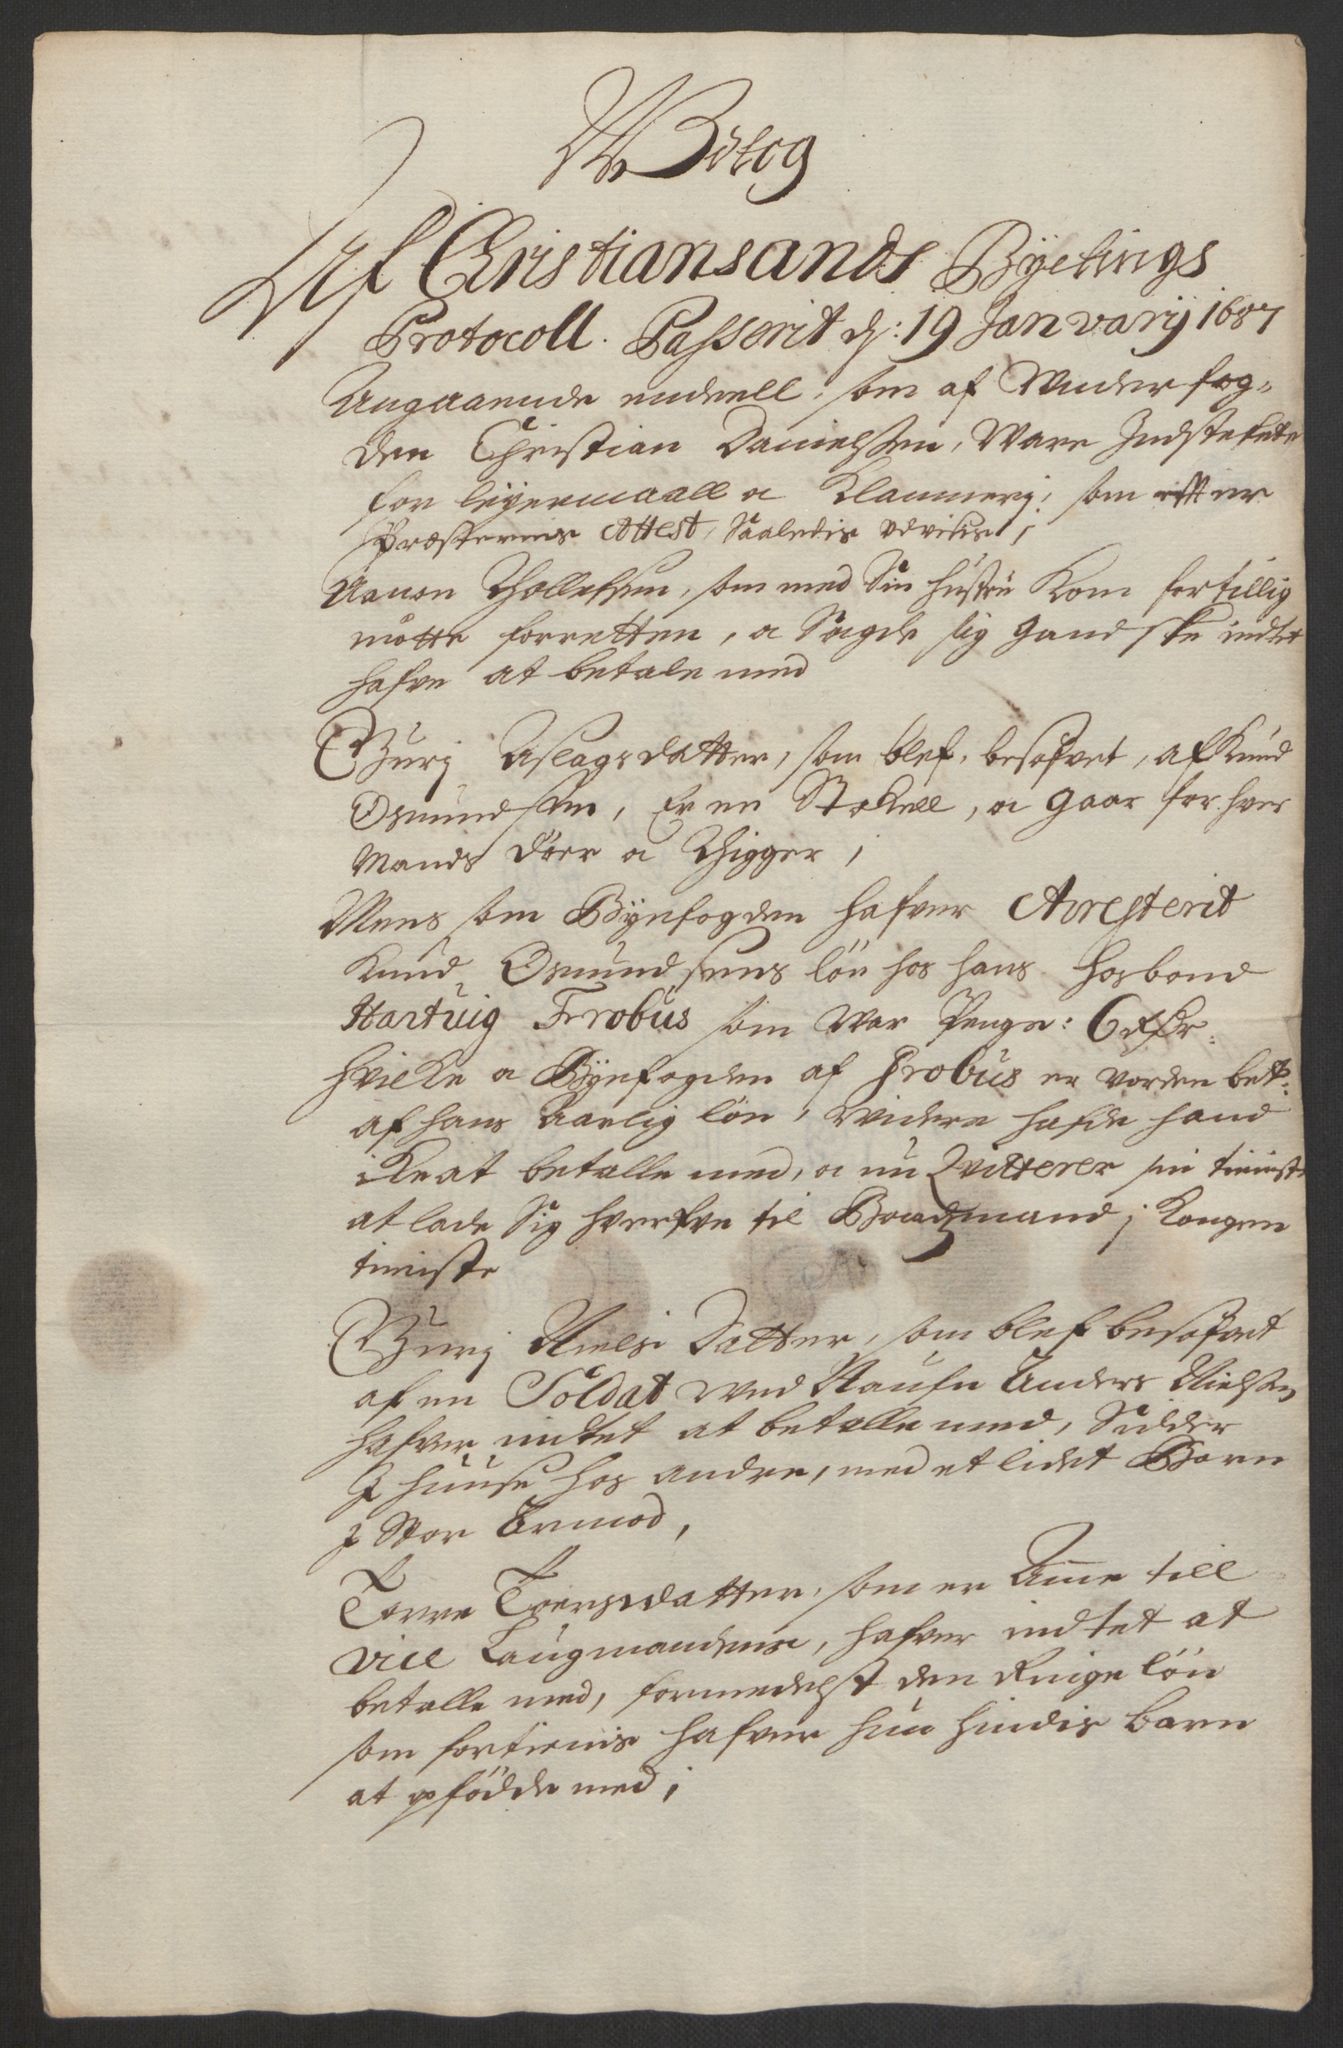 Wdtog
Af Christiansands Byetings
Protocoll. Passerit d: 19 Janvarij 1687
Angaaende endeell, som af Underfog-
den Christian Danielssen, Ware Indstefnte
for leyermaall a Klammerj, som efter
Præsternis Attest, Saaledis Udvises,
Aanon Thollefsen, som med Sin hustru Kom fortillig
møtte forretten, a Sagde sig gandske indtet
hafve at betale med
Gurj Aslagsdatter, som blef besofvet, af Knud
Osmundsen, Er en Stakell, a gaar for hver
Mands døer a Thigger,
Mens som Byefogden hafver Arresterit
Knud Osmundsens løn hos hans hosbond
Hartvig Frobus som War Penge: 6 rdr:
hvilke a Byefogden af Probus er vorden bet:
af hans Aarlig løn, widere hafde hand
icke at betalle med, a nu Qvitterer sin tienist
at lade Sig hverfve til Baadzmand j Kongen
tieniste
Gurj Niels Datter, som blef besofvet
af en Soldat wed Nafn Anders Nielssen
hafver indtet at betalle med, Sidder
I huuse hos andre, med et lidet Barn
I Stor Armod,
Torre Toersdatter, som er Amme till
vice Laugmandens, hafver indtet at
betalle med, formedelst den Ringe løn
som fortienis hafver hun hindis barn
at opfødde med,